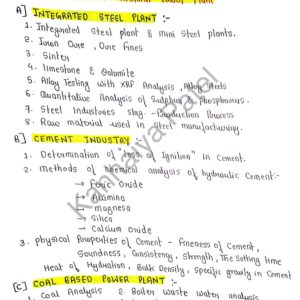 Thermal Power Plant
A] INTEGRATED STEEL PLANT :-
1. Integrated Steel plant & mini steel plants.
2. Iron Ore, Ore fines
3. Sinter
4. limestone & Dolomite
5. Alloy Testing with XRF Analysis, Alloy Steels
6. Quantitative Analysis of Sulphur & Phosphorus.
7. Steel Industries slag - Production Process
8. Raw material used in Steel manufacturing.
B] CEMENT INDUSTRY :-
1. Determination of "Loss of Ignition" in Cement.
2. methods of chemical analysis of hydraulic Cement:-
→ Ferric Oxide
→ Alumina
→ magnesa
→ Silica
→ Calcium Oxide
3. physical Properties of Cement - Fineness of Cement,
Soundness, Consistency, Strength, The Setting time
Heat of Hydration, Bulk Density, Specific gravity in Cement
[C] COAL BASED POWER PLANT :-
1. Coal Analysis & Boiler waste water analysis
Kanhaiya Patel